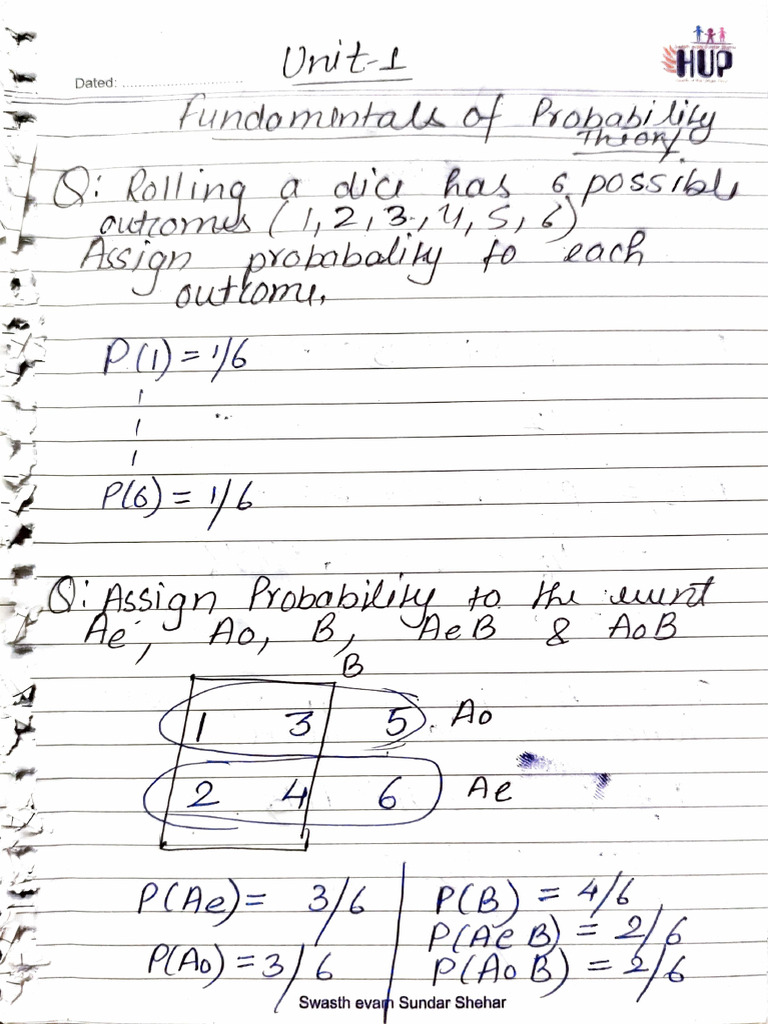 Unit-1
HUP
Dated:
Fundamentals of Probability
Theory
Q: Rolling a dice has 6 possible
outcomes (1, 2, 3, 4, 5, 6)
Assign probabality to each
outcome.
P(1) = 1/6
P(6) = 1/6
Q: Assign Probability to the event
Ae, Ao, B, AeB & AoB
B
1 3 5 Ao
2 4 6 Ae
P(Ae) = 3/6 P(B) = 4/6
P(AeB) = 2/6
P(Ao) = 3/6 P(AoB) = 2/6
Swasth evam Sundar Shehar